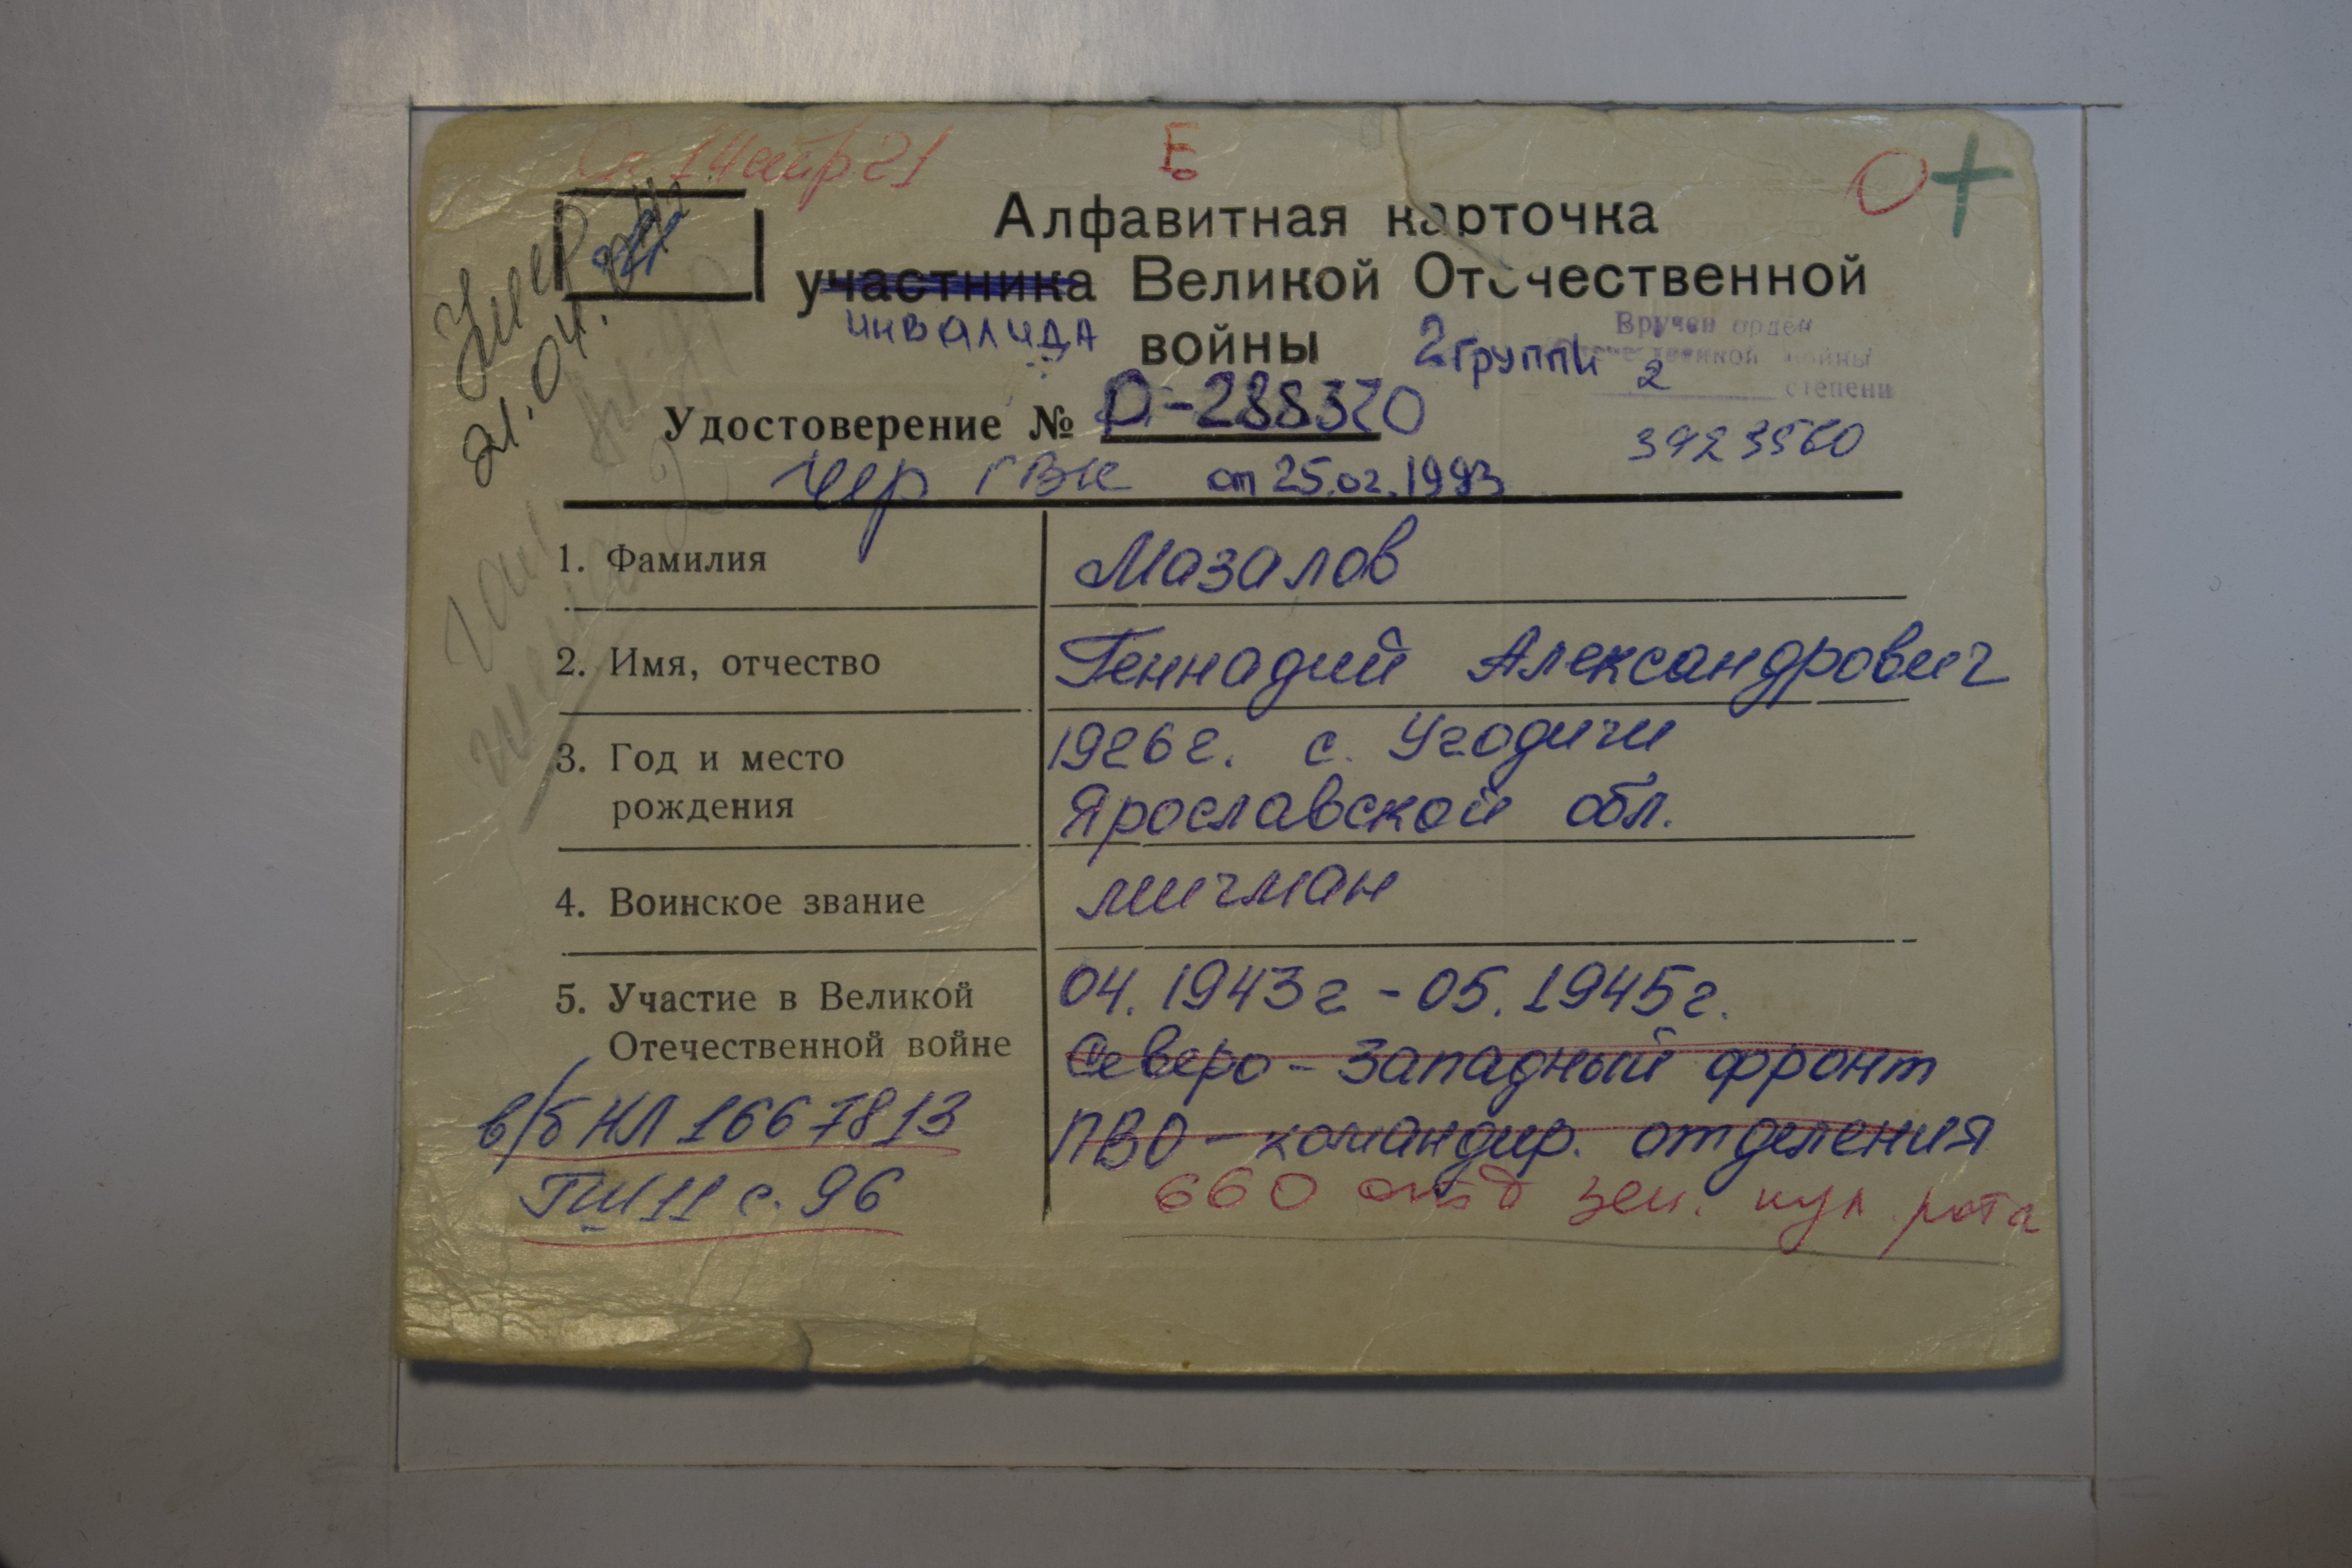 14 апр 21
Е
О+
Умер
21.04.
Алфавитная карточка
участника Великой Отечественной
инвалида войны 2 группы
Вручен орден
Отечественной войны
2 степени
3923560
Удостоверение № Р-288320
Чер ГВК от 25.02.1993
1. Фамилия Мазалов
2. Имя, отчество Геннадий Александрович
3. Год и место 1926 г. с. Угодичи
рождения Ярославской обл.
4. Воинское звание мичман
5. Участие в Великой 04.1943г - 05.1945г.
Отечественной войне Северо-Западный фронт
в/б НЛ 1667813 ПВО - командир. отделения
ГШ 11 с. 96 660 зен. пул. рота